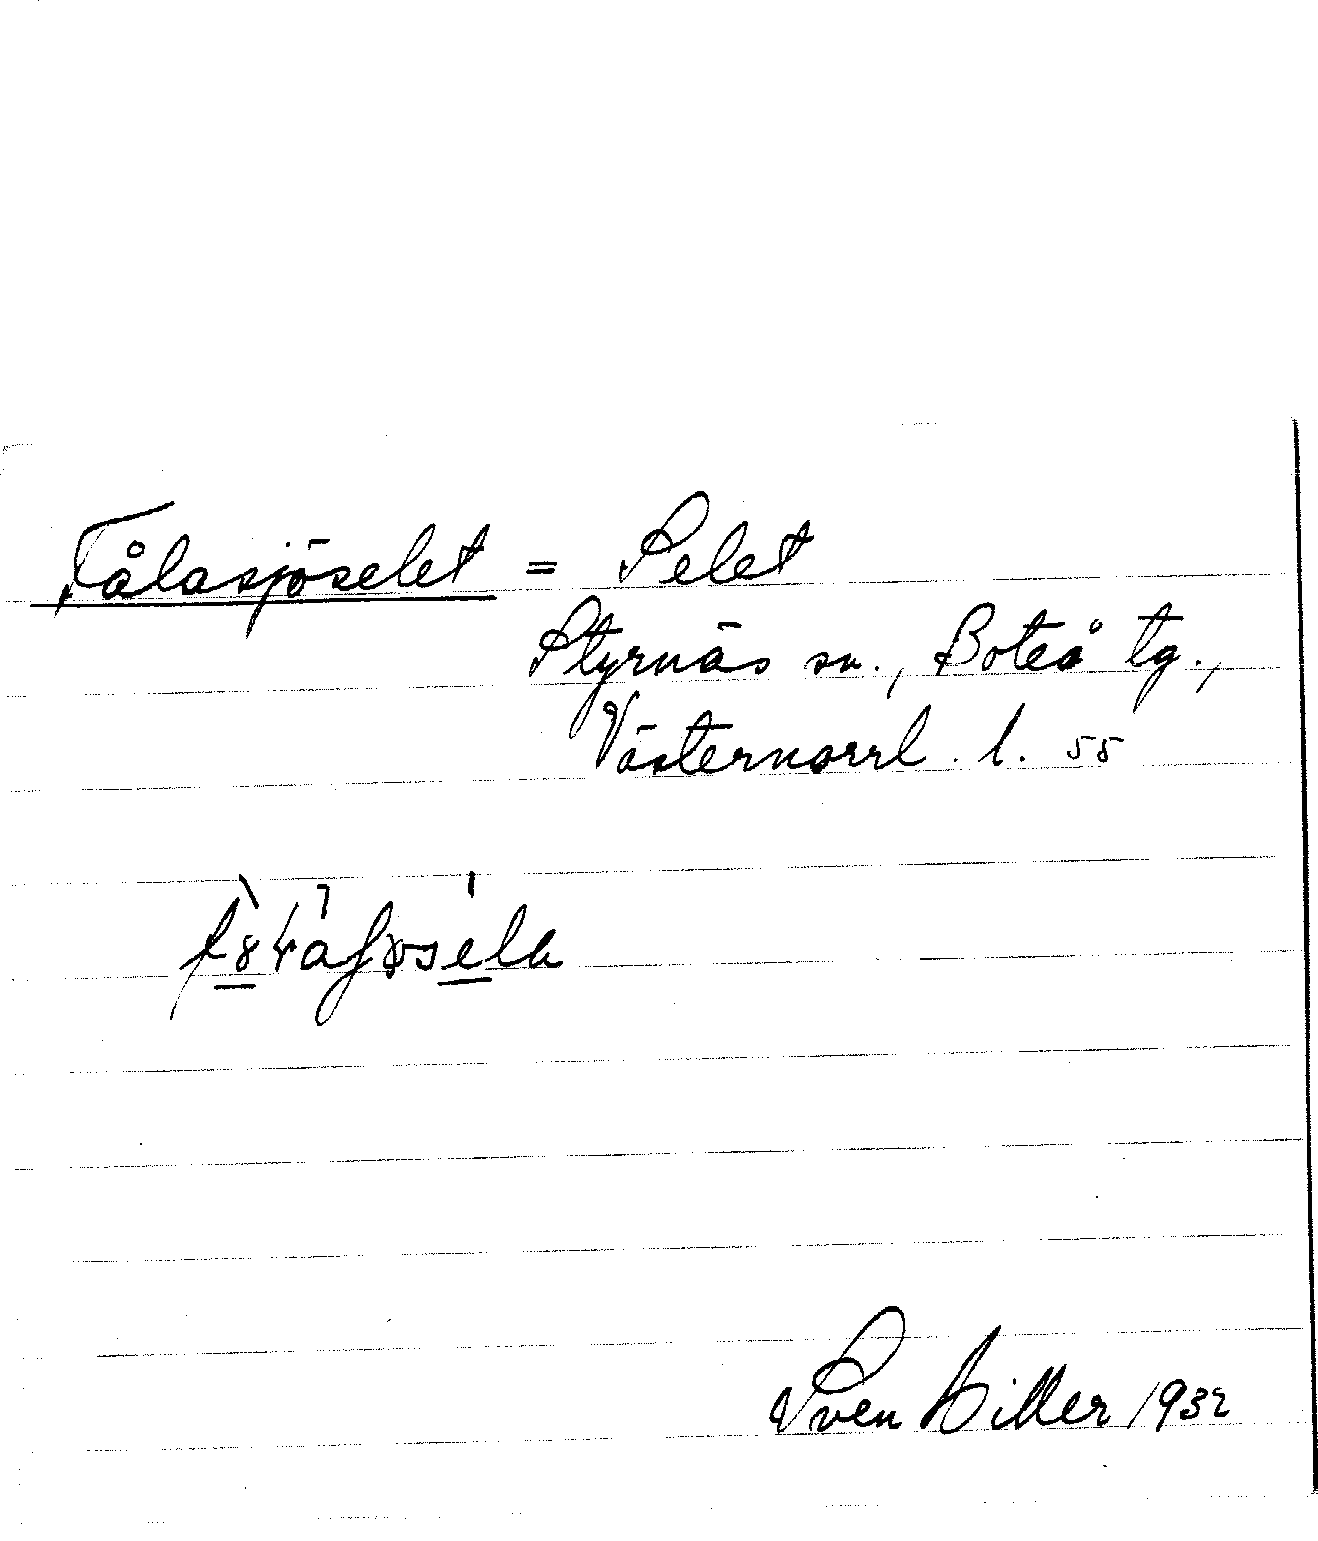 Tålasjöselet = Selet
Styrnäs sn., Boteå tg.,
Västernorrl. l. 55
Sven Hiller 1932